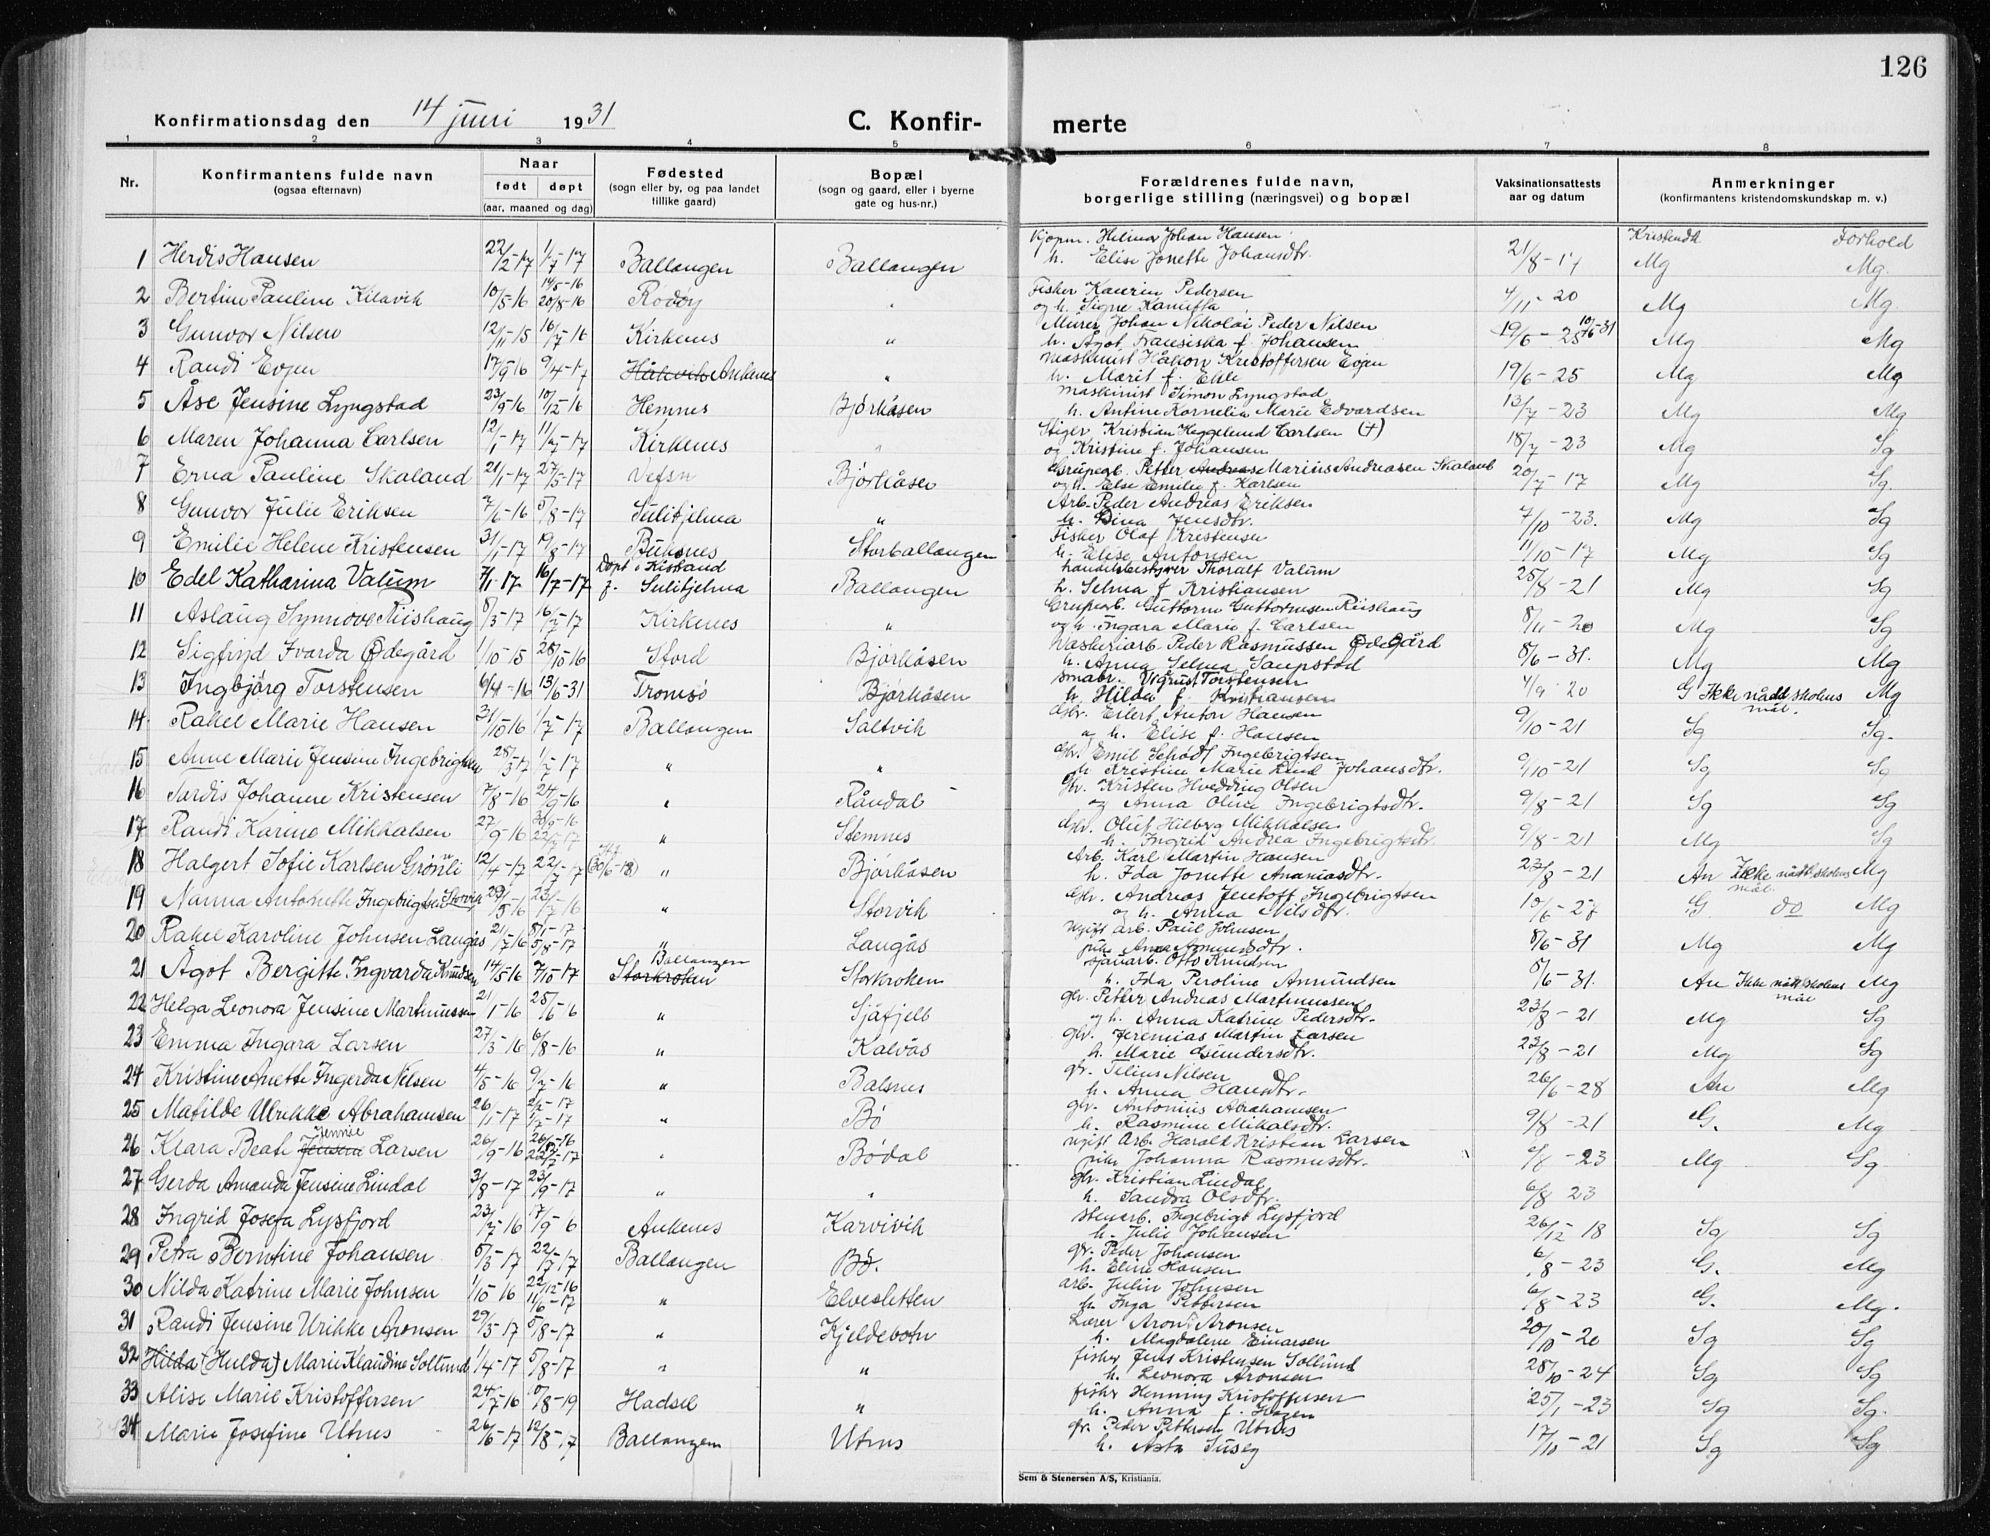 126
Konfirmationsdag den 14 juni 1931 C. Konfir- merte
1 2 3 4 5 6 7 8
Nr. Konfirmantens fulde navn (ogsaa efternavn) Naar født døpt (aar, maaned og dag) Fødested (sogn eller by, og paa landet tillike gaard) Bopæl (sogn og gaard, eller i byerne gate og hus-nr.) Forældrenes fulde navn, borgerlige stilling (næringsvei) og bopæl Vaksinationsattests aar og datum Anmerkninger (konfirmantens kristendomskundskap m. v.)
Kristendk Forhold
1 Herdis Hansen 22/2-17 1/7-17 Ballangen Ballangen Kjøpm. Hilmar Johan Hansen h. Elise Jonette Johansdtr. 21/8-17 Mg Mg.
2 Bertine Pauline Kilavik 10/5-16 14/5-16 20/8-16 Rødøy " Fisker Kaurin Pedersen og h. Signe 4/11-20 Mg Mg.
3 Gunvor Nilsen 12/11-15 16/7-16 Kirkenes " Murer Johan Nikolai Peder Nilsen h. Agot Fransiska f. Johansen 19/6-25 10/6-31 Mg Mg
4 Randi Evjen 17/9-16 9/4-17 Håkvik Ankenes " Maskinist Håkon Kristoffersen Evjen h. Marit f. 19/6-25 Mg Mg
5 Åse Jensine Lyngstad 23/9-16 10/12-16 Hemnes Bjørkåsen Maskinist Simon Lyngstad h. Antine Kornelia Marie Edvardsen 13/7-23 Mg Mg
6 Maren Johanna Carlsen 12/1-17 11/7-17 Kirkenes " Stiger Kristian Heggelund Carlsen (+) og Kristine f. Johansen 18/7-23 Mg Sg
7 Erna Pauline Skaland 21/1-17 27/5-17 Vefsn Bjørkåsen Grubearb. Petter Andreas Marius Andreasen Skaland og h. Else Emilie f. Karlsen 20/7-17 Mg Sg.
8 Gunvor Julie Eriksen 7/6-16 5/8-17 Sulitjelma " Arb. Peder Andreas Eriksen h. Dina Jensdtr. 7/10-23. Mg Sg
9 Emilie Helene Kristensen 31/1-17 19/8-17 Buksnes Storballangen Fisker Olaf Kristensen h. Elise Antonsen 11/10-17 Mg Sg
10 Edel Katharina Valum 7/1-17 16/7-17 Døpt i Kistrand f. Sulitjelma Ballangen Handelsbestyrer Thoralf Valum h. Selma f. Kristiansen 25/8-21 Mg Sg
11 Aslaug Synnøve Riishaug 8/3-17 16/7-17 Kirkenes " Grubearb. Guttorm Guttormsen Riishaug og h. Ingara Marie f. Carlsen 8/11-20 Mg Sg
12 Sigfrid Ivarda Ødegård 1/10-15 28/10-16 Stord Bjørkåsen Vaskeriarb. Peder Rasmussen Ødegård h. Anna Selma Saupstad 8/6-31. Mg Mg
13 Ingbjørg Torstensen 6/4-16 13/6-31 Tromsø Bjørkåsen Småbr. August Torstensen h. Hilda f. Kristiansen 4/9-20 G Ikke nådd skolens mål. Mg
14 Rakel Marie Hansen 31/10 16 1/7-17 Ballangen Saltvik Gbr. Eilert Anton Hansen og h. Elise f. Hansen 9/10-21 Sg Sg.
15 Anne Marie Jensine Ingebrigtsen 28/3-17 1/7-17 " " Gbr. Emil Schødt Ingebrigtsen h. Kristine Marie Lind Johansdtr. 9/10-21 Sg Sg
16 Tordis Johanne Kristensen 7/8-16 24/9-16 " Råndal Gbr. Kristen Hvedding Olsen og Anna Oline Ingebrigtsdtr. 9/8-21 Sg Sg
17 Randi Karine Mikkalsen 27/9-16 22/7-17 " Stemnes Gbr. Oluf Hilberg Mikkalsen h. Ingrid Andrea Ingebrigtsdtr. 9/8-21 Mg Sg
18 Halgert Sofie Karlsen Grønli 12/4-17 22/7-17 (30/6-18) " Bjørkåsen Arb. Karl Martin Hansen h. Ida Jonette Ananiasdtr. 23/8-21 An Ikke nådd skolens mål Mg
19 Nanna Antonette Ingebrigtsen Storvik 29/5-16 23/7-16 " Storvik Gbr. Andreas Jentoft Ingebrigtsen og h. Anna Nilsdtr. 10/6-27 G. do Mg
20 Rakel Karoline Johnsen Langås 21/7-16 8/1-17 5/8-17 " Langås Ugift arb. Paul Johnsen pike Ane Amundsdtr. 8/6-31 Mg Mg
21 Ågot Bergitte Ingvarda Knudsen 14/5-16 7/10-17 Ballangen Storkroken Storkroken Sjauarb. Otto Knudsen h. Ida Peroline Amundsen 8/6-31. An Ikke nådd skolens mål Mg
22 Helga Leonora Jensine Martinussen 21/1-16 25/6-16 " Sjåfjell Gbr. Petter Andreas Martinussen og h. Anna Katrine Pedersdtr. 23/8-21 Mg Sg
23 Emma Ingara Larsen 27/3-16 6/8-16 " Kalvås Gbr. Jeremias Martin Larsen h. Marie Gundersdtr. 23/8-21 Mg Sg
24 Kristine Anette Ingerda Nilsen 4/5-16 9/7-16 " Balsnes Gbr. Tilius Nilsen h. Anna Hansdtr. 26/6-28 An Mg
25 Matilde Ulrikke Abrahamsen 26/1-17 2/2-17 1/7-17 " Bø Gbr. Antonius Abrahamsen h. Rasmine Mikalsdtr. 9/8-21 G. Mg
26 Klara Beate Jensine Jennie Larsen 26/9-16 22/7-17 " Bødal Ugift arb. Harald Kristian Larsen pike Johanna Rasmusdtr. 6/8-23 Mg Sg
27 Gerda Amanda Jensine Lindal 3/8-17 23/9-17 " " Gbr. Kristian Lindal h. Sandra Olsdtr. 6/8 23
28 Ingrid Josefa Lysfjord 23/7-16 17/9-16 Ankenes Karvivik Stenarb. Ingebrigt Lysfjord h. Julie Johansen 26/12-18 Sg Sg
29 Petra Berntine Johansen 5/3-17 22/7-17 Ballangen Bø. Gbr. Peder Johansen h. Eline Hansen 6/8-23 G. Mg
30 Nilda Katrine Marie Johnsen 1/10-16 22/12-16 11/6-17 " Elvesletten Arb. Julin Johnsen h. Inga Pettersen 6/8-23 G. Mg.
31 Randi Jensine Ulrikke Aronsen 29/3-17 5/8-17 " Kjeldebotn Lærer Aron Aronsen h. Magdalene Einarsen 20/10-20 Sg Sg
32 Hilda (Hulda) Marie Klaudine Sollund 1/4-17 5/8-17 " " Fisker Jens Kristensen Sollund h. Leonora Aronsen 28/10-24 Sg Sg
33 Alise Marie Kristoffersen 24/7-16 10/8-19 Hadsel " Fisker Henning Kristoffersen h. Anna f. Hagen 25/1-23 Sg Sg.
34 Marie Josefine Utnes 26/6-17 12/8-17 Ballangen Utnes Gbr. Peder Pettersen Utnes h. Asta 17/10-21 Sg Sg
Sem & Stenersen A/S, Kristiania.